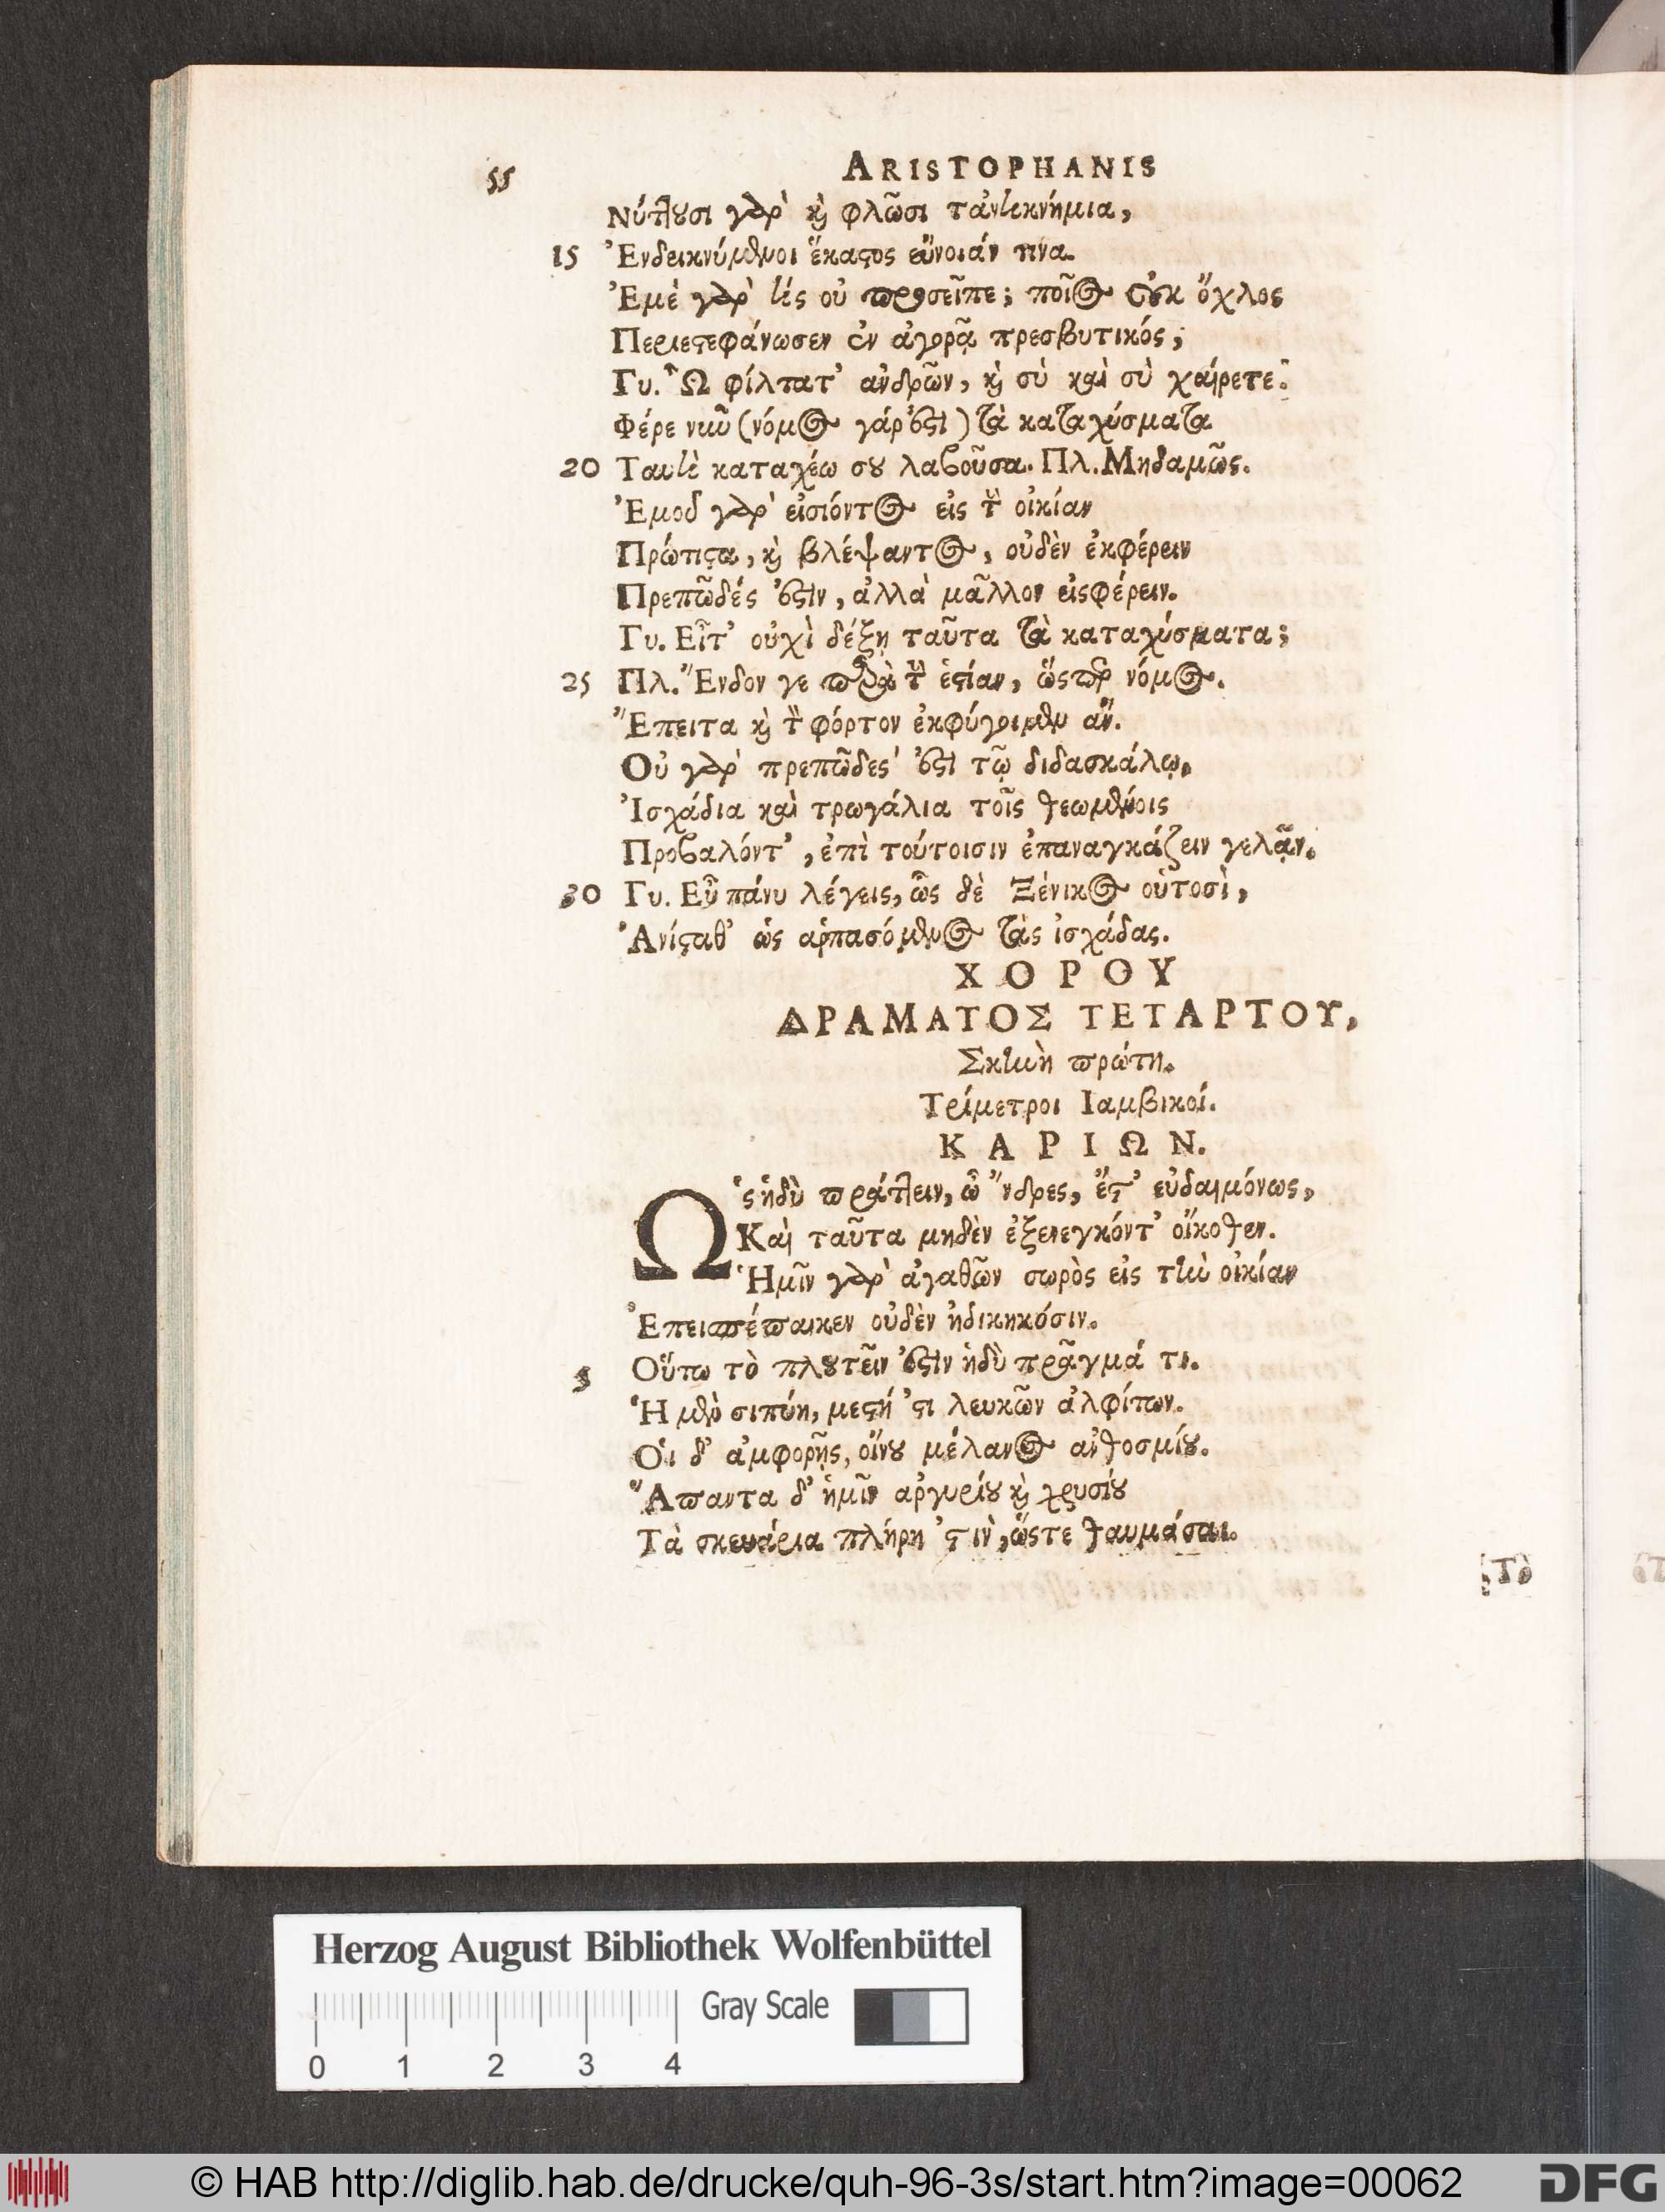 55 ARISTOPHANIS
Νύττουσι γὰρ καὶ φλῶσι τἀντικνήμια,
15 Ἐνδεικνύμενοι ἕκαστος εὔνοιάν τινα.
Ἐμὲ γὰρ τίς οὐ προσεῖπε; ποῖος οὐκ ὄχλος
Περιεστεφάνωσεν ἐν ἀγορᾷ πρεσβυτικός;
Γυ. Ὦ φίλτατ' ἀνδρῶν, καὶ σὺ καὶ σὺ χαίρετε.
Φέρε νῦν (νόμος γάρ ἐστι) τὰ καταχύσματα
20 Ταυτὶ καταχέω σου λαβοῦσα. Πλ. Μηδαμῶς.
Ἐμοῦ γὰρ εἰσιόντος εἰς τὴν οἰκίαν
Πρώτιστα, καὶ βλέψαντος, οὐδὲν ἐκφέρειν
Πρεπῶδές ἐστιν, ἀλλὰ μᾶλλον εἰσφέρειν.
Γυ. Εἶτ' οὐχὶ δέξῃ ταῦτα τὰ καταχύσματα;
25 Πλ. Ἔνδον γε παρὰ τὴν ἑστίαν, ὥσπερ νόμος.
Ἔπειτα καὶ τὸν φόρτον ἐκφύγοιμεν ἄν.
Οὐ γὰρ πρεπῶδες ἐστι τῷ διδασκάλῳ,
Ἰσχάδια καὶ τρωγάλια τοῖς θεωμένοις
Προβαλόντ', ἐπὶ τούτοισιν ἐπαναγκάζειν γελᾷν.
30 Γυ. Εὖ πάνυ λέγεις, ὧς δὲ Ξένικος οὑτοσὶ,
Ἀνίσταθ' ὡς ἁρπασόμενος τὰς ἰσχάδας.
ΧΟΡΟΥ
ΔΡΑΜΑΤΟΣ ΤΕΤΑΡΤΟΥ,
Σκηνὴ πρώτη.
Τρίμετροι Ιαμβικοί.
ΚΑΡΙΩΝ.
Ὡς ἡδὺ πράττειν, ὦ ''νδρες, ἔστ' εὐδαιμόνως,
Καὶ ταῦτα μηδὲν ἐξενεγκόντ' οἴκοθεν.
Ἡμῖν γὰρ ἀγαθῶν σωρὸς εἰς τὴν οἰκίαν
Ἐπεισπέπαικεν οὐδὲν ἠδικηκόσιν.
5 Οὕτω τὸ πλουτεῖν ἐστὶν ἡδὺ πρᾶγμά τι.
Ἡ μὲν σιπύη, μεστή 'στι λευκῶν ἀλφίτων.
Οἱ δ' ἀμφορῇς, οἴνου μέλανος ἀνθοσμίου.
Ἅπαντα δ' ἡμῖν ἀργυρίου καὶ χρυσίου
Τὰ σκευάρια πλήρη 'στὶν, ὥστε θαυμάσαι.
Τὸ
Herzog August Bibliothek Wolfenbüttel
0 1 2 3 4 Gray Scale
© HAB http://diglib.hab.de/drucke/quh-96-3s/start.htm?image=00062 DFG